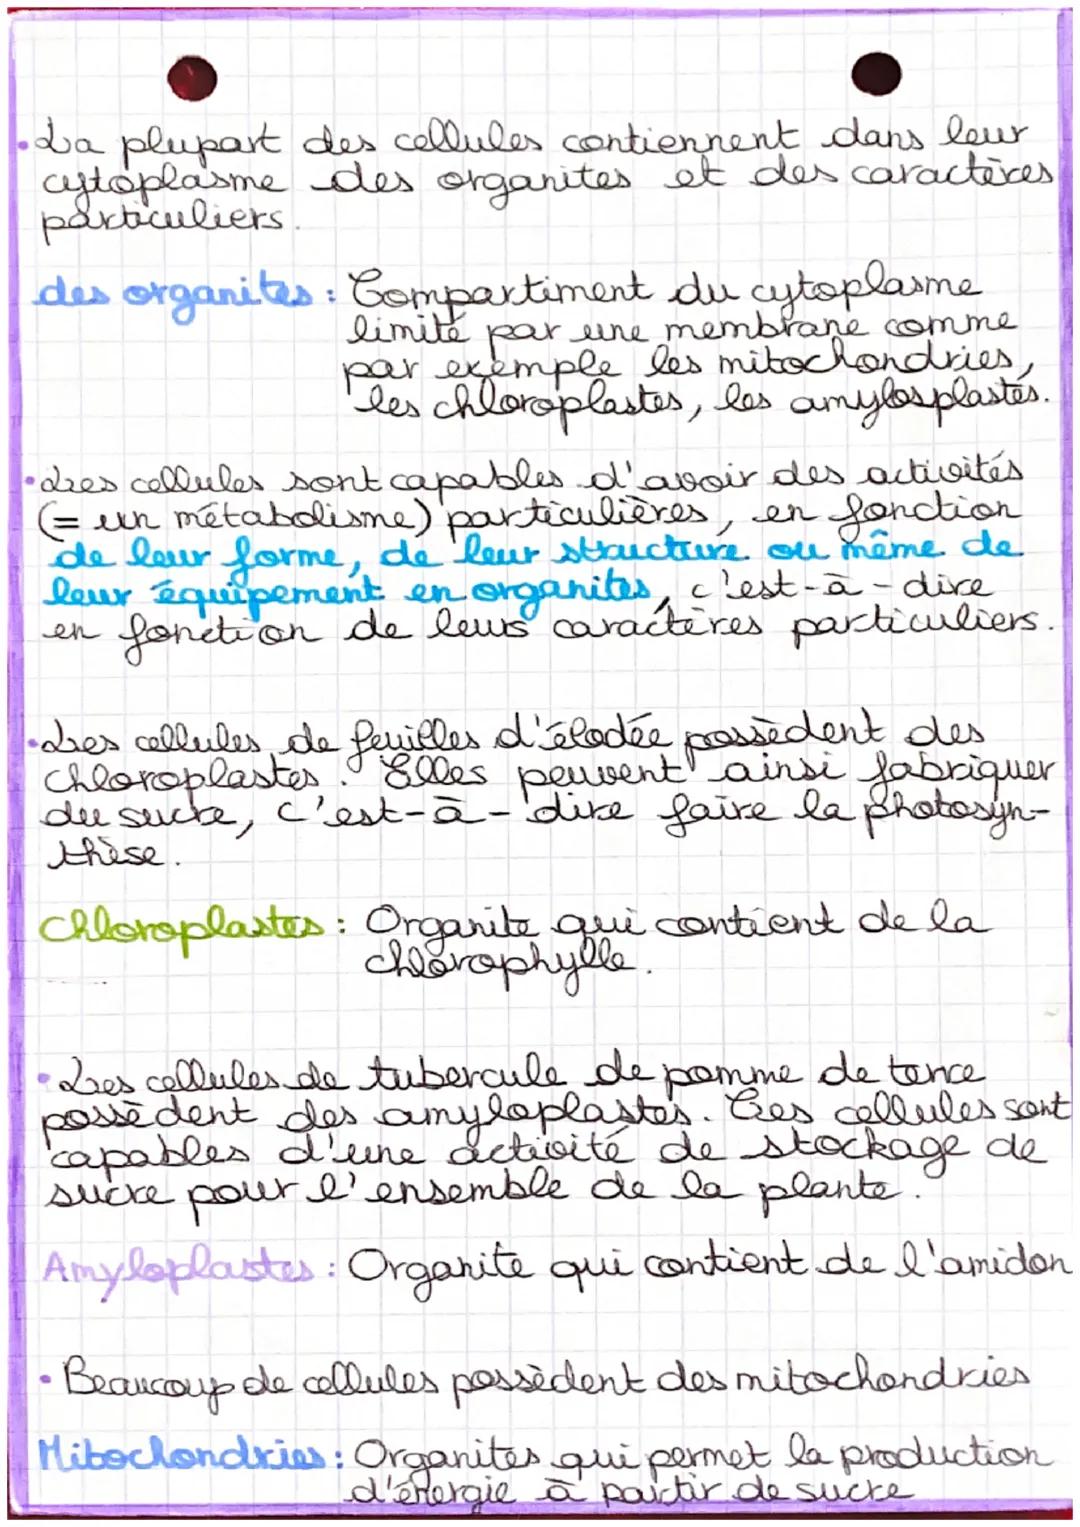 • La plupart des cellules contiennent dans leur
cytoplasme des organites et des caractères
particuliers.
des organites : Compartiment du cytoplasme
limité par une membrane comme
par exemple les mitochondries,
les chloroplastes, les amylosplastes.
• Les cellules sont capables d'avoir des activités
(= un métabolisme) particulières, en fonction
de leur forme, de leur structure ou même de
leur équipement en organites, c'est-à-dire
en fonction de leurs caractères particuliers.
• Les cellules de feuilles d'élodée possèdent des
chloroplastes. Elles peuvent ainsi fabriquer
du sucre, c'est-à-dire faire la photosyn-
thèse.
Chloroplastes : Organite qui contient de la
chlorophylle.
• Les cellules de tubercule de pomme de terre
possèdent des amyloplastes. Ces cellules sont
capables d'une activité de stockage de
sucre pour l'ensemble de la plante.
Amyloplastes : Organite qui contient de l'amidon
• Beaucoup de cellules possèdent des mitochondries
Mitochondries : Organites qui permet la production
d'énergie à partir de sucre